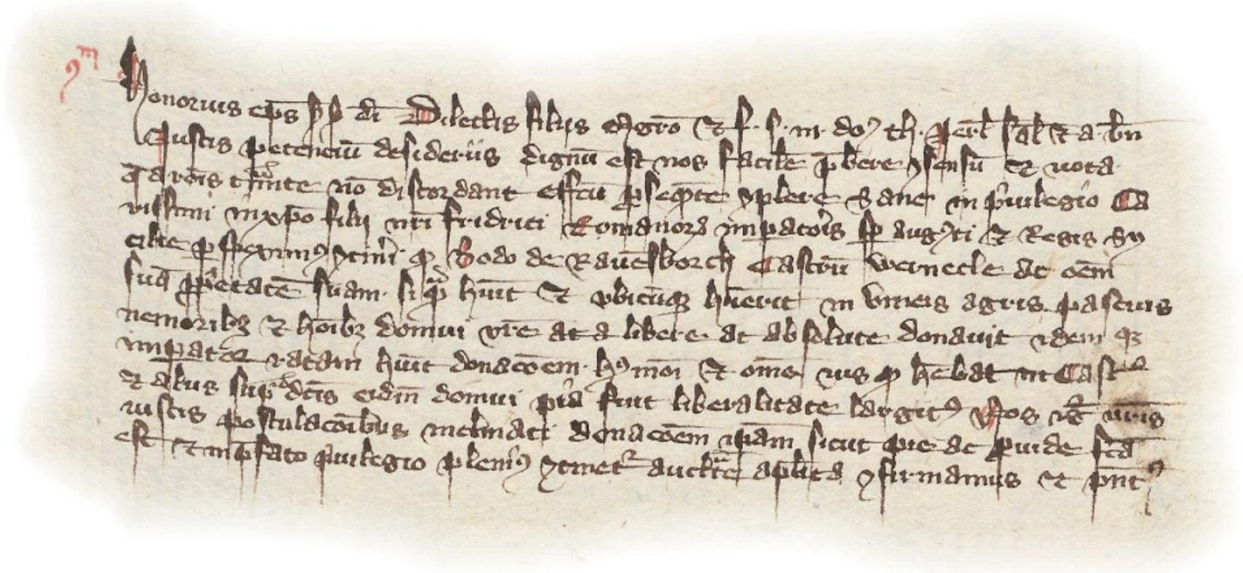 Honorius eps s s di Dilectis filijs mgro Et f. s. m. do th. Jerl sal Et a bn
Justis petenciu desideriis dignu est nos facile pbere 9sensu Et uota
q a rois tmite no discordant effcu pseqte 9plere Sane in priuilegio Ca
rissimi in xpo filij nri fridrici Romanor impatoris sp augusti Et Regis Sy
cilie pspeximus 9tineri q Bodo de Rauesborch Castru wernecke ac oem
sua ppetate suam si qd huit Et vbicuqz huerit in vineis agris pascuis
nemoribz Et hoibz domui vre at a libere at absolute donauit idem qz
impator ratam huit donacoem hus moi Et ome ius qd hebat in Castro
Et alijs supdcis eidm domui pia fuit liberalitate largitus Nos igit uris
iustis postulacoibus inclinati donacoem ipam sicut pie ac puide fca
est Et in pfato priuilegio plenius 9tinet auctte aplica 9firmamus Et pnt